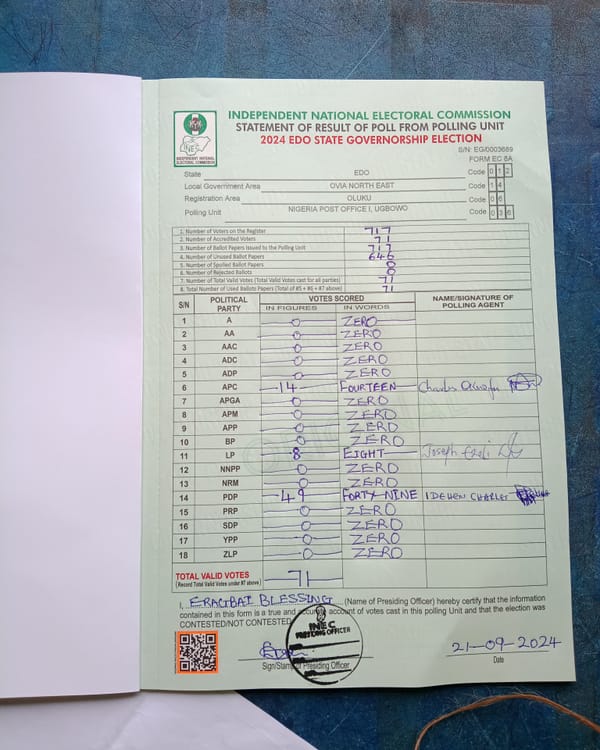 INDEPENDENT NATIONAL ELECTORAL COMMISSION
STATEMENT OF RESULT OF POLL FROM POLLING UNIT
2024 EDO STATE GOVERNORSHIP ELECTION
INEC
INDEPENDENT NATIONAL
ELECTORAL COMMISSION
S/N: EG/0003689
FORM EC 8A
State EDO Code 0 1 2
Local Government Area OVIA NORTH EAST Code 1 4
Registration Area OLUKU Code 0 6
Polling Unit NIGERIA POST OFFICE I, UGBOWO Code 0 3 6
1. Number of Voters on the Register 717
2. Number of Accredited Voters 71
3. Number of Ballot Papers Issued to the Polling Unit 717
4. Number of Unused Ballot Papers 646
5. Number of Spoiled Ballot Papers 0
6. Number of Rejected Ballots 0
7. Number of Total Valid Votes (Total Valid Votes cast for all parties) 71
8. Total Number of Used Ballots Papers (Total of #5 + #6 + #7 above) 71
S/N POLITICAL PARTY VOTES SCORED NAME/SIGNATURE OF POLLING AGENT
IN FIGURES IN WORDS
1 A 0 ZERO
2 AA 0 ZERO
3 AAC 0 ZERO
4 ADC 0 ZERO
5 ADP 0 ZERO
6 APC 14 FOURTEEN Charles
7 APGA 0 ZERO
8 APM 0 ZERO
9 APP 0 ZERO
10 BP 0 ZERO
11 LP 8 EIGHT Joseph
12 NNPP 0 ZERO
13 NRM 0 ZERO
14 PDP 49 FORTY NINE IDEHEN CHARLES
15 PRP 0 ZERO
16 SDP 0 ZERO
17 YPP 0 ZERO
18 ZLP 0 ZERO
TOTAL VALID VOTES 71
(Record Total Valid Votes under #7 above)
I, ERAGBAI BLESSING (Name of Presiding Officer) hereby certify that the information
contained in this form is a true and accurate account of votes cast in this polling Unit and that the election was
CONTESTED/NOT CONTESTED
INEC
PRESIDING OFFICER
21-09-2024
Sign/Stamp of Presiding Officer Date